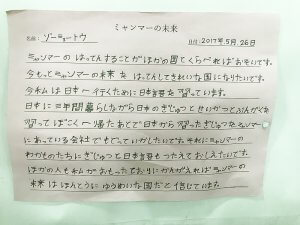 ミャンマーの未来
名前：ゾーミョートウ 日付：2017年5月26日
ミャンマーの はってんすることがほかの国とくらべればおそいです。
今もっとミャンマーの未来を はってんしてきれいな国になりたいです。
今私は 日本へ行くために日本語を習っています。
日本に三年間暮らしながら日本のぎじゅつとせいかつとぶんかを
習ってぼこくへ帰たあとで日本から習ったぎじゅつをミャンマー
にあっている会社でもどっていかしたいです。それにミャンマーの
わかものたちにぎじゅつと日本語をもつたえておしえたいです。
ほかの人も私がおもったとおりにかんがえればミャンマーの
未来は ほんとうにゆうめいな国だと信じています。